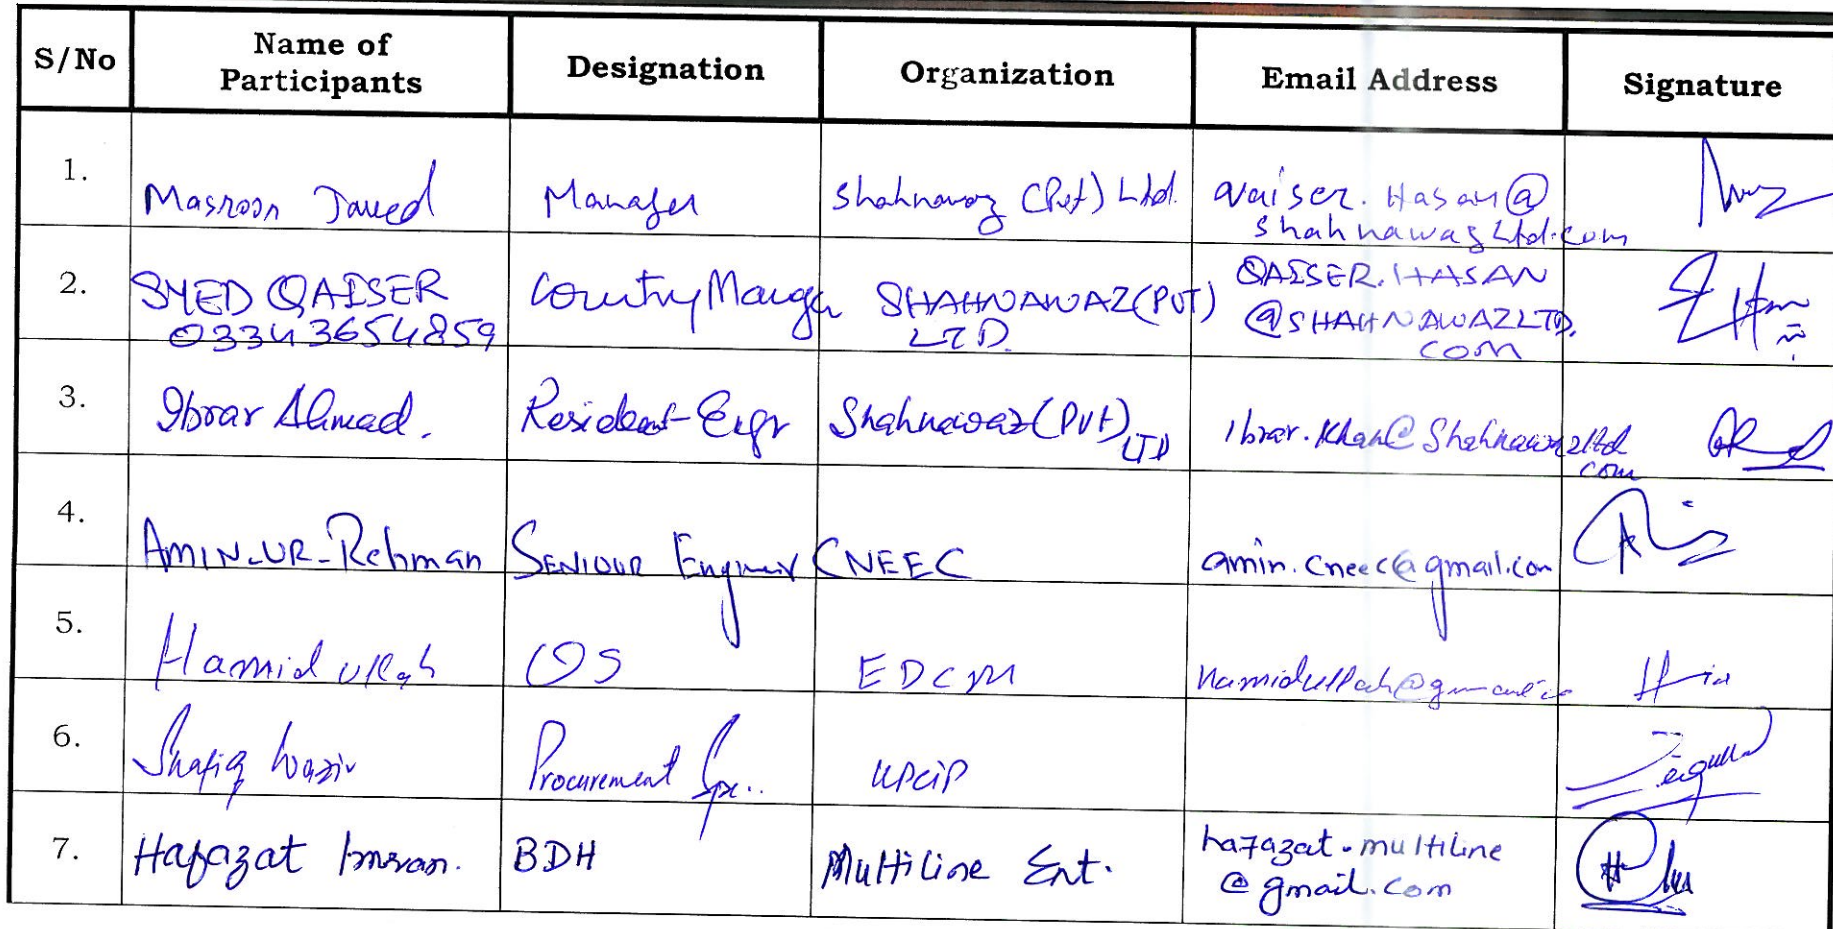 S/No Name of Participants Designation Organization Email Address Signature
1. Masroor Javed Manager Shahnawaz (Pvt) Ltd. qaiser.Hasan@
shahnawazLtd.com
2. SYED QAISER Country Manager SHAHNAWAZ (PVT) QAISER.HASAN
03343654859 LTD. @SHAHNAWAZLTD.
COM
3. Ibrar Ahmad. Resident Engr Shahnawaz (Pvt) LTD Ibrar.Khan@Shahnawazltd
com
4. AMIN-UR-Rehman SENIOUR Engineer CNEEC amin.cneec@gmail.com
5. Hamid ullah OS EDCM hamidullah@gmail.co
6. Shafiq Wazir Procurement Spe.. KPCIP
7. Hafazat Imran. BDH Multiline Ent. hafazat.multiline
@gmail.com